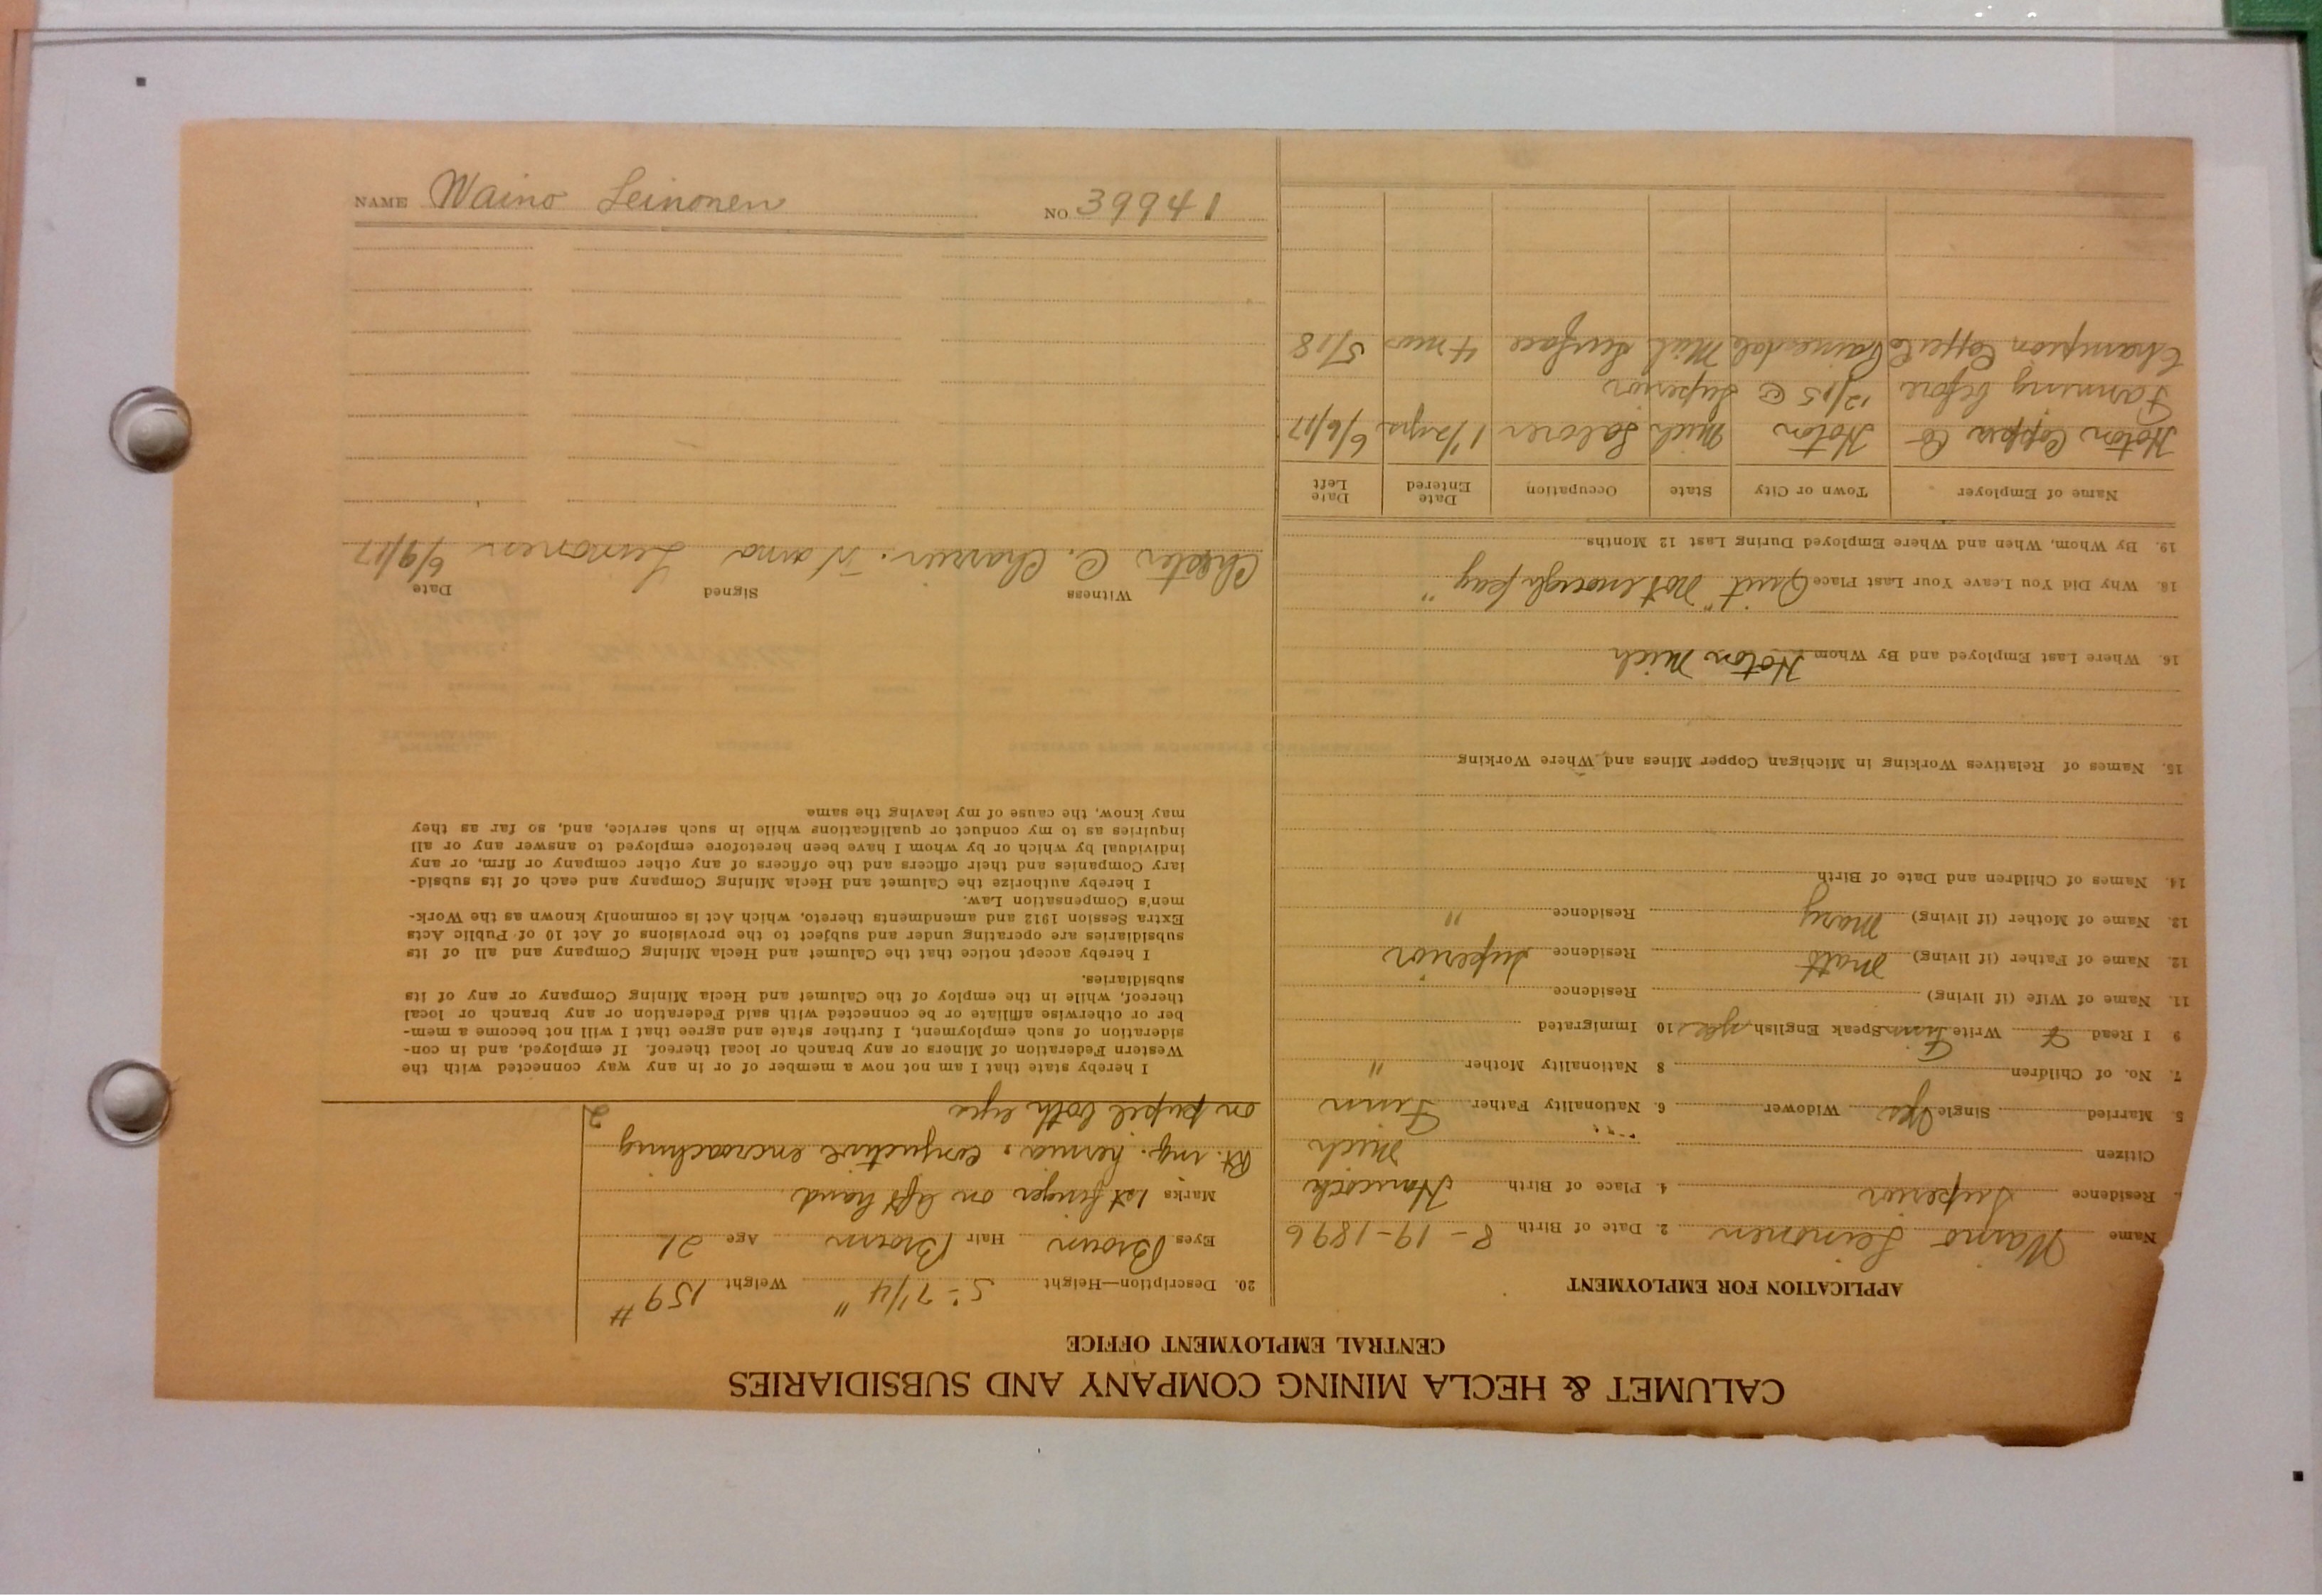 CALUMET & HECLA MINING COMPANY AND SUBSIDIARIES
CENTRAL EMPLOYMENT OFFICE
APPLICATION FOR EMPLOYMENT
Name Waino Leinonen 2. Date of Birth 8-19-1896
Residence Superior 4. Place of Birth Hancock
Citizen Mich
5. Married Single Yes Widower 6. Nationality Father Finn
7. No. of Children 8 Nationality Mother "
9 I Read F Write Finn Speak English yes 10 Immigrated
11. Name of Wife (if living) Residence
12. Name of Father (if living) Matt Residence Superior
13. Name of Mother (if living) Mary Residence "
14. Names of Children and Date of Birth
15. Names of Relatives Working in Michigan Copper Mines and Where Working
16. Where Last Employed and By Whom Hoton Mich
18. Why Did You Leave Your Last Place Quit "Not enough pay"
19. By Whom, When and Where Employed During Last 12 Months
Name of Employer Town or City State Occupation Date Entered Date Left
Hoton Copper Co Hoton Mich Laborer 1 1/2 yrs 6/6/17
Farming before 12/15 @ Superior
Champion Copper Co Painesdale Mich Surface 4 mos 5/18
20. Description—Height 5'-7 1/4" Weight 159#
Eyes Brown Hair Brown Age 21
Marks 1st finger on left hand
Rt. ing. hernia. conjuctive encroaching
on pupil both eyes 2
I hereby state that I am not now a member of or in any way connected with the
Western Federation of Miners or any branch or local thereof. If employed, and in con-
sideration of such employment, I further state and agree that I will not become a mem-
ber or otherwise affiliate or be connected with said Federation or any branch or local
thereof, while in the employ of the Calumet and Hecla Mining Company or any of its
subsidiaries.
I hereby accept notice that the Calumet and Hecla Mining Company and all of its
subsidiaries are operating under and subject to the provisions of Act 10 of Public Acts
Extra Session 1912 and amendments thereto, which Act is commonly known as the Work-
men's Compensation Law.
I hereby authorize the Calumet and Hecla Mining Company and each of its subsid-
iary Companies and their officers and the officers of any other company or firm, or any
individual by which or by whom I have been heretofore employed to answer any or all
inquiries as to my conduct or qualifications while in such service, and, so far as they
may know, the cause of my leaving the same
Witness Signed Date
Chester C. Leinonen 6/9/17
NAME Waino Leinonen NO 39941